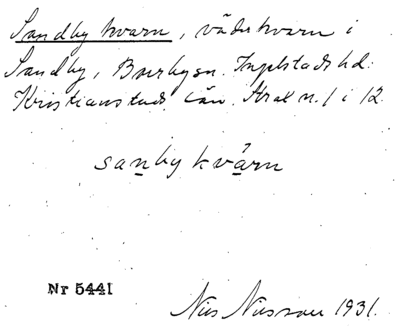 Sandby kvarn, väderkvarn i
Sandby, Borrby sn. Ingelstads hd.
Kristianstads län. Skal n. 1 i 12.
sanby kvärn
Nr 5441
Nils Nilsson 1931.